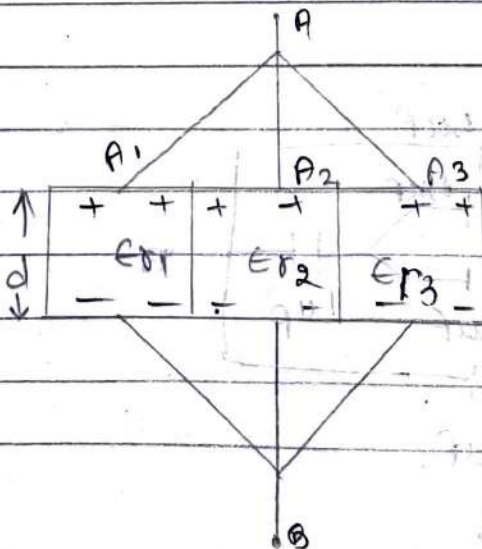 A
A1 A2 A3
+ + + + + +
d Er1 Er2 Er3
- - - - - -
B